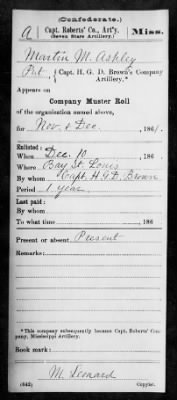 (Confederate.)
A | Capt. Roberts' Co., Art'y. | Miss.
(Seven Stars Artillery.)
Martin M. Ashley
Pvt., { Capt. H. G. D. Brown's Company
Artillery.*
Appears on
Company Muster Roll
of the organization named above,
for Nov. & Dec., 1861.
Enlisted:
When Dec. 10, 186
Where Bay St. Louis
By whom Capt. H. G. D. Brown
Period 1 year
Last paid:
By whom
To what time , 186
Present or absent Present
Remarks:
*This company subsequently became Capt. Roberts' Company, Mississippi Artillery.
Book mark:
M. Leonard
(642) Copyist.